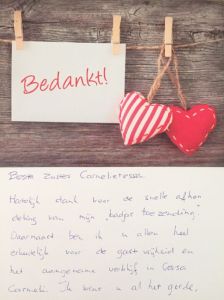 Bedankt!
Beste zuster Cornelieressen
Hartelijk dank voor de snelle afhan
deling van mijn "badpr toezending"
Daarnaast ben ik u allen heel
erkentelijk voor de gastvrijheid en
het aangename verblijf in Casa
Carmeli. Ik wens u al het goede,